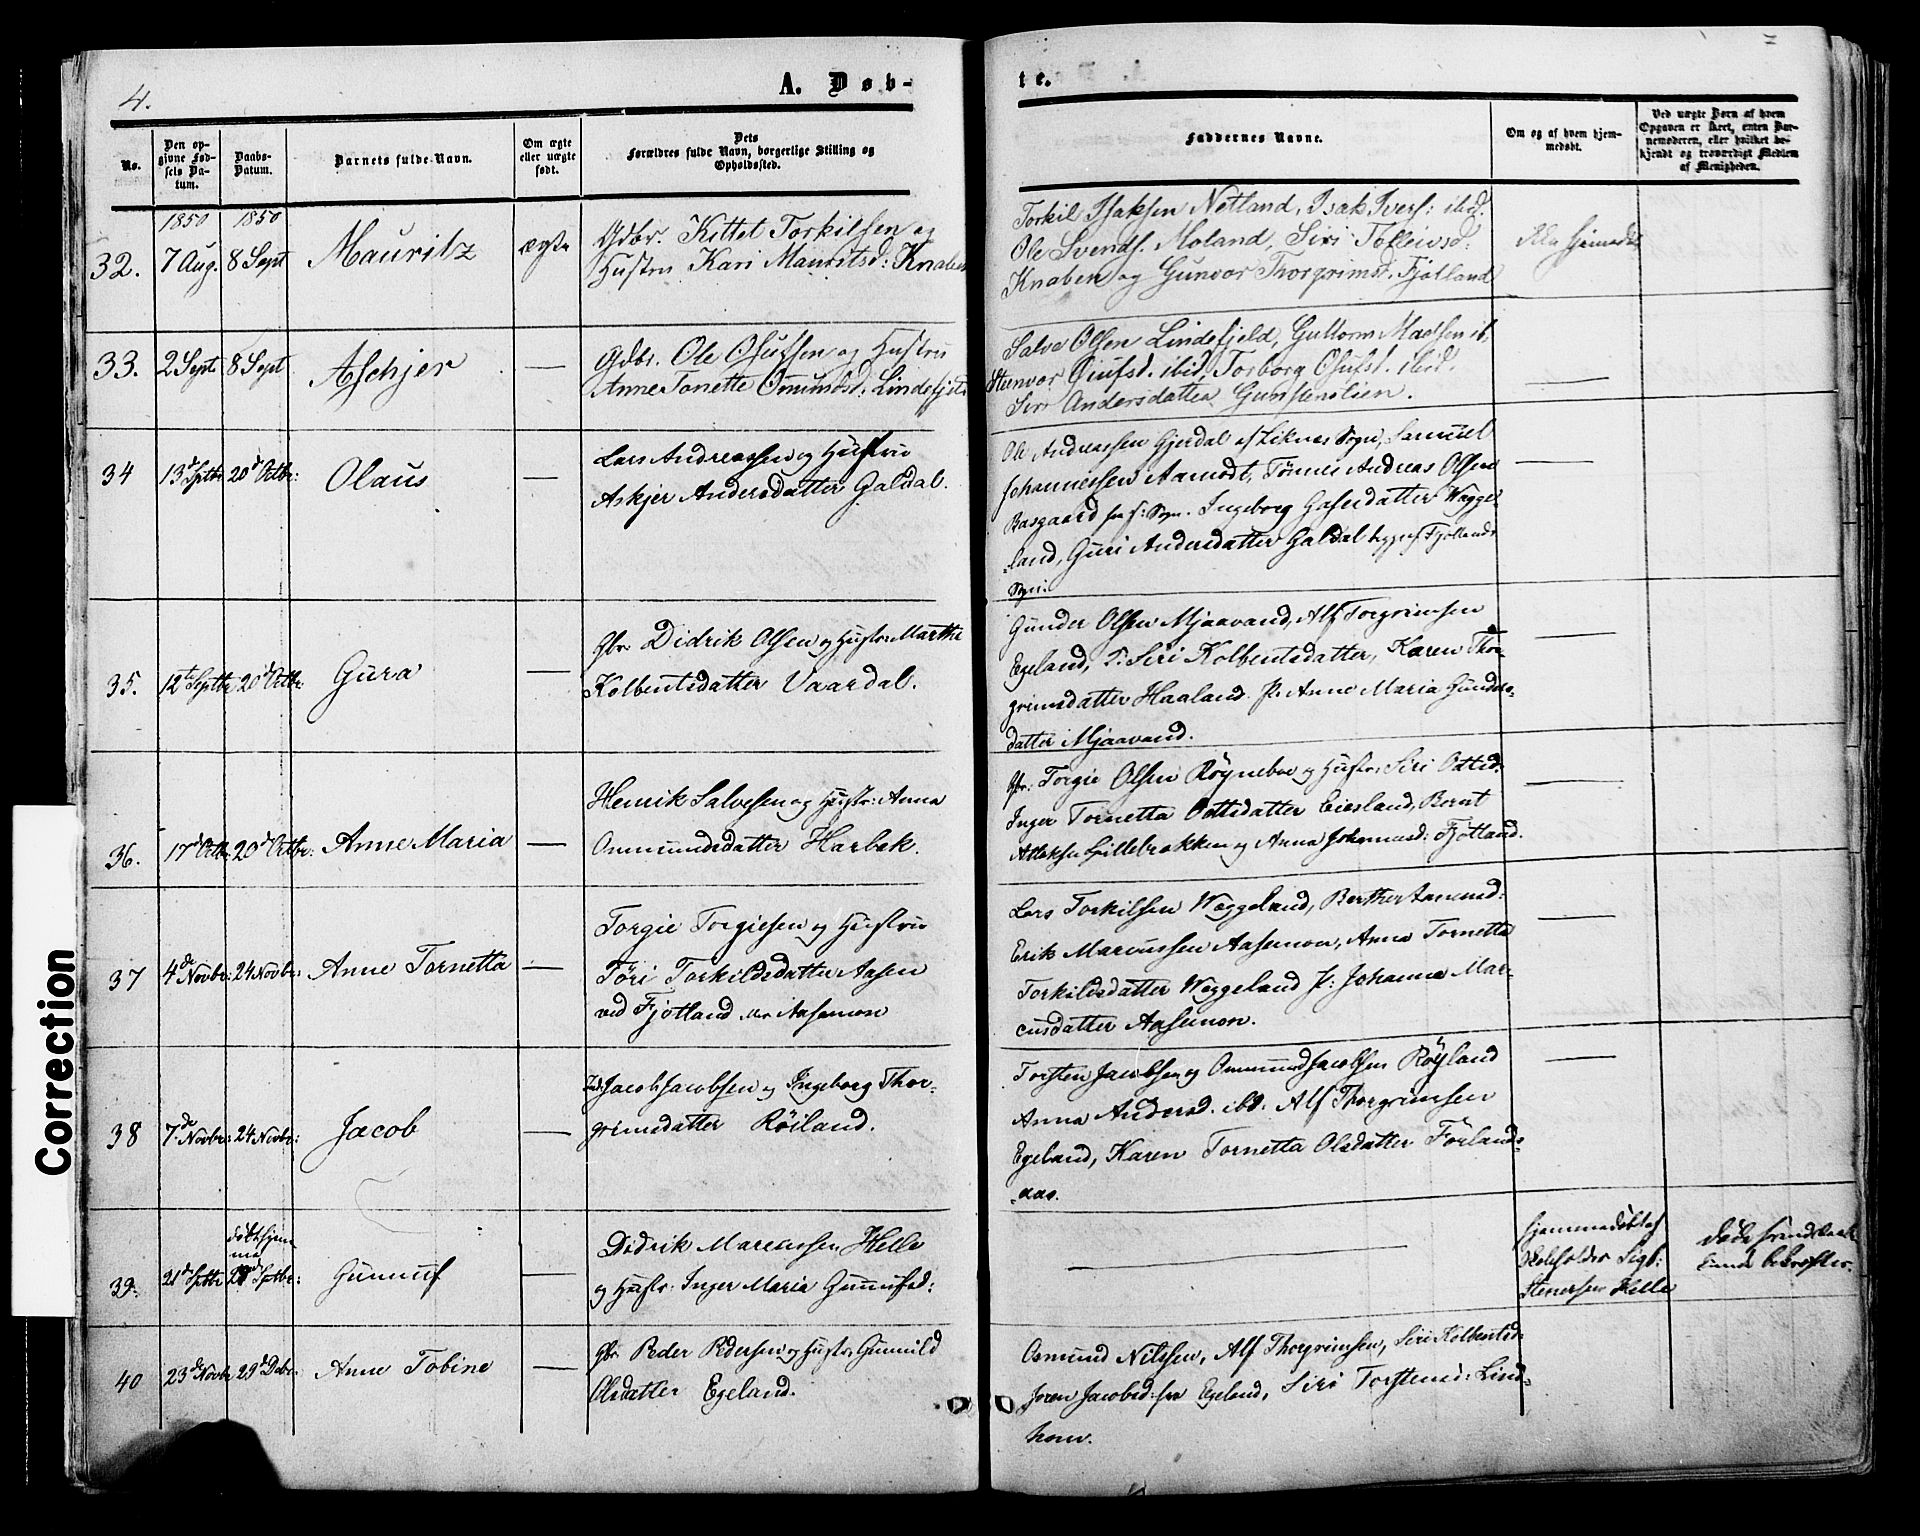 4.
A. Døb-
te.
No.
Den op-
givne Fød-
sels Da-
tum.
Daabs-
Datum.
Barnets fulde Navn.
Om ægte
eller uægte
født.
Dets
Forældres fulde Navn, borgerlige Stilling og
Opholdssted.
Faddernes Navne.
Om og af hvem hjem-
medøbt.
Ved uægte Børn af hvem
Opgaven er skeet, enten Bar-
nemoderen, eller hvilket be-
kjendt og troværdigt Medlem
af Menigheden.
1850 1850
32. 7 Aug. 8 Sept Mauritz ægte
Gdbr. Kittel Torkilsen og
Hustru Kari Mauritsd: Knaben
Torkil Isaksen Netland, Isak Ivers: ibid.
Ole Svends. Moland, Siri Tolleivsd:
Knaben og Gunvor Thorgrimsd. Fjotland
33. 2 Sept 8 Sept Aschjer —
Gdbr. Ole Osufsen og Hustru
Anne Tonette Omundsd: Lindefjeld
Salve Olsen Lindefjeld, Guttorm Madsen ib.
Stenvor Osufsd. ibid, Torborg Osufsd. ibid.
Siri Andersdatter Gunstenslien. —
34 13de Septbr 20de Octbr: Olaus —
Lars Andreassen og Hustru
Askjer Andersdatter Galdal.
Ole Andreassen Gjerdal af Liknes Sogn, Samuel
Johannessen Aamodt, Tønnes Andreas Olsen
Risgaard fra s: Sogn. Ingeborg Gasesdatter Wægge-
land, Guri Andersdatter Galdal begge af Fjotlands
Sogn. —
35. 12te Septbr 20de Octbr: Gura —
Gbr. Didrik Olsen og Hustr: Marthe
Kolbentsdatter Vaardal.
Gunder Olsen Mjaavand, Alf Torgrimsen
Egeland, P: Siri Kolbentsdatter, Karen Thor-
grimsdatter Haaland. P. Anne Maria Gunders-
datter Mjaavand. —
36. 17de Octbr 20de Octbr: Anne Maria —
Henrik Salvesen og Hustr: Anna
Ommundsdatter Harbak.
Gbr: Torgie Olsen Røyneboe og Hustr: Siri Ottesd:
Inger Tornetta Ottesdatter Eiesland, Bernt
Atlaksen Lillebrakken og Anna Johannesd: Fjotland. —
37 4de Novbr: 24 Novbr: Anne Tornetta —
Torgie Torgiesen og Hustru
Tøri Torkildsdatter Aasen
ved Fjotland Aasemoen
Lars Torkilsen Wæggeland, Berthe Aanensd:
Erik Marcussen Aasemoen, Anna Tornetta
Torkildsdatter Wæggeland P: Johanna Mar-
cusdatter Aasemoen. —
38 7de Novbr: 24 Novbr: Jacob —
Jacob Jacobsen og Ingeborg Thor-
grimsdatter Røiland.
Torsten Jacobsen og Ommund Jacobsen Røyland
Anna Andersd. ibd: Alf Thorgrimsen
Egeland, Karen Tornetta Olsdatter Førlands-
aas. —
39. 21de Septbr døbt hjem-
me
Septbr: Gunuf —
Didrik Marcussen Helle
og Hustr: Inger Maria Gunufsd:
—
hjemmedøbt af
Skoleholder Sigb:
Stenersen Helle
40 23de Novbr 29de Debr. Anne Tobine —
Gbr. Peder Pedersen og Hustr: Gunnild
Olsdatter Egeland.
Osmund Nilssen, Alf Thorgrimsen, Siri Kolbentsd:
Joren Jacobsd: fra Egeland, Siri Torstensd: Lind-
hom.
Correction